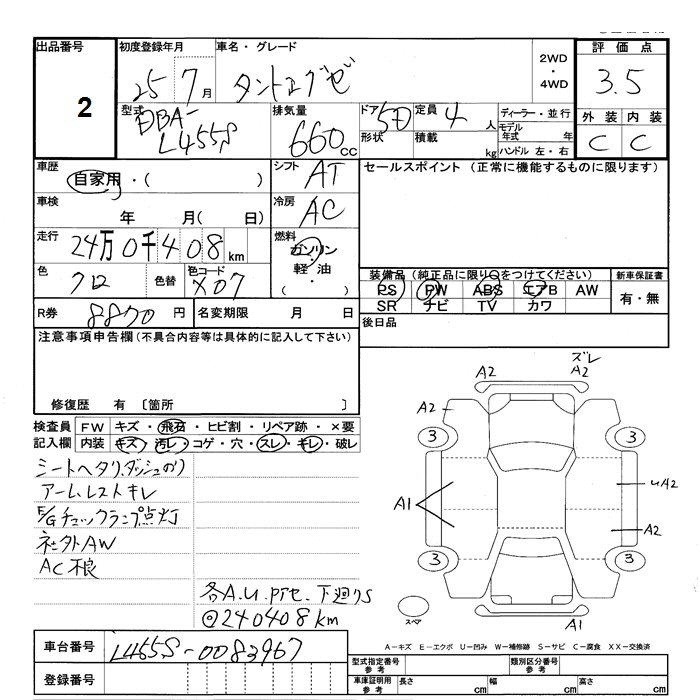 出品番号
2
初度登録年月
25 7月
車名・グレード
タントエグゼ
2WD
・
4WD
評価点
3.5
型式
DBA-
L455S
排気量
660cc
ドア 5D
形状
定員 4人
積載 kg
ディーラー・並行
モデル年式 年
ハンドル 左・右
外装 内装
C C
車歴
自家用・( )
シフト AT
セールスポイント (正常に機能するものに限ります)
車検 年 月( 日)
冷房 AC
走行 24万0千408km
燃料
ガソリン
軽油
・( )
色 クロ 色替 色コード X07
装備品(純正品に限り○をつけてください)
PS PW ABS エアB AW
SR ナビ TV カワ
新車保証書
有・無
R券 8870円 名変期限 月 日
後日品
注意事項申告欄(不具合内容等は具体的に記入して下さい)
修復歴 有 〔箇所 〕
検査員 FW キズ・飛石・ヒビ割・リペア跡・×要
記入欄 内装 キズ・汚レ・コゲ・穴・スレ・キレ・破レ
シートヘタリ、ダッシュのり
アームレストキレ
E/Gチェックランプ点灯
社外AW
AC不良
各A.U.
下廻りS
◎240408km
ズレ
A2 A2
A2
3 3
A1
UA2
A2
3 3
スペア
A1
A−キズ E−エクボ U−凹み W−補修跡 S−サビ C−腐食 XX−交換済
車台番号 L455S-0083967
登録番号
型式指定番号 参考
類別区分番号 参考
車庫証明用 参考
長さ cm 幅 cm 高さ cm